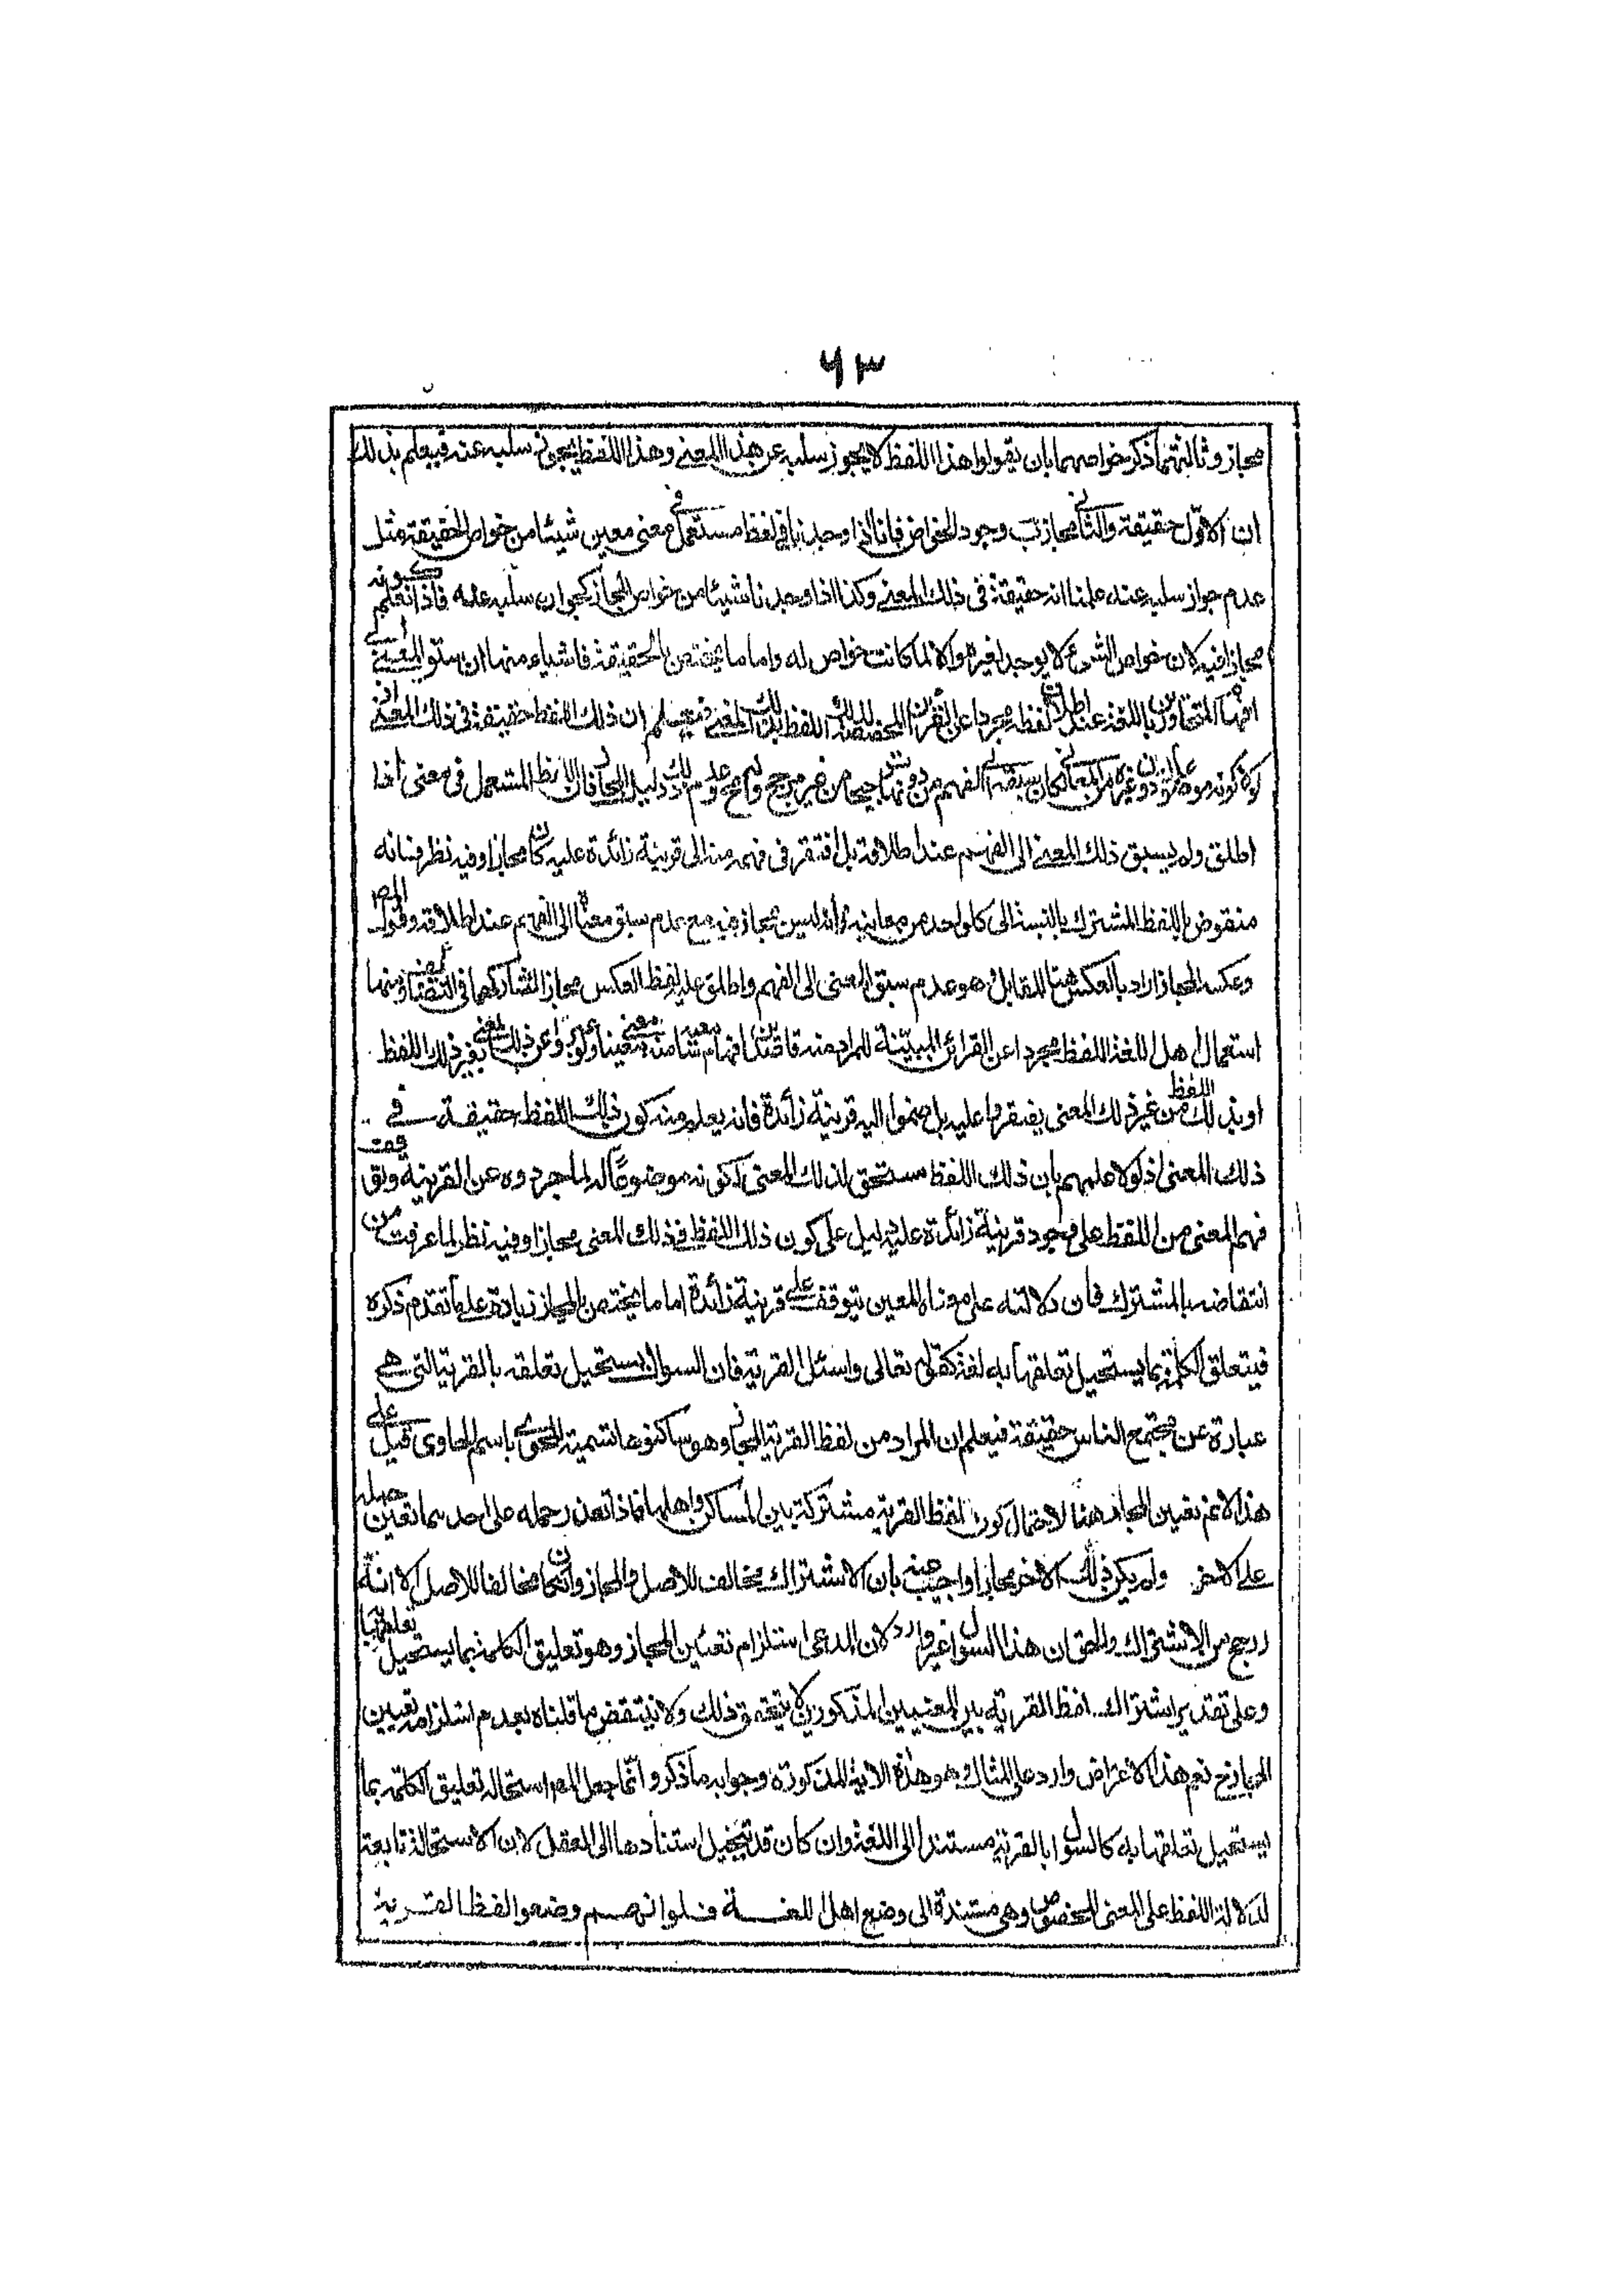 ٦٣
مجاز وثالثتهما ذكر خواصهما بان يقولوا هذا اللفظ لا يجوز سلبه عن هذا المعنى وهذا اللفظ يجوز سلبه عنه فيعلم بذلك
ان الاول حقيقة والثاني مجاز وجود الخواص فانا اذا وجدنا في لفظ مستعمل في معنى معين شيئا من خواص الحقيقة مثل
عدم جواز سلبه عنه علمنا انه حقيقة في ذلك المعنى وكذا اذا وجدنا شيئا من خواص المجاز كجواز سلبه عنه فاذا نعلم كونه
مجازا فيه لان خواص الشيء لا يوجد لغيره والا لما كانت خواص له واما ما يختص بالحقيقة فاشياء منها ان سبق المعنى الى
افهام المتحاورين باللغة عند اطلاق لفظه مجردا عن القرائن المخصصة لذلك اللفظ بذلك المعنى فيعلم ان ذلك اللفظ حقيقة في ذلك المعنى اذ
لولا كونه موضوعا له دون غيره من المعاني لكان سبقه الى الفهم من دونها ترجيحا من غير مرجح وانه مح وعدم ذلك دليل المجاز فان اللفظ المستعمل في معنى اذا
اطلق ولم يسبق ذلك المعنى الى الفهم عند اطلاقه بل افتقر في فهمه منه الى قرينة زائدة عليه كان مجازا وفيه نظر فانه
منقوض باللفظ المشترك بالنسبة الى كل واحد من معانيه فانه ليس بمجاز فيه مع عدم سبق معناه الى الفهم عند اطلاقه وقول المص
وعكسه المجاز اراد بالعكس هنا المقابل وهو عدم سبق المعنى الى الفهم واطلق عليه لفظ العكس مجازا لتشاركهما في ومنها
استعمال اهل اللغة اللفظ مجردا عن القرائن المبينة للمراد منه قاصدين افهام معنى معينا ولو عبروا عن ذلك المعنى بغير ذلك اللفظ
او بذلك اللفظ من غير ذلك المعنى يفتقروا عليه بل ضموا اليه قرينة زائدة فانه يعلم منه كون ذلك اللفظ حقيقة في
ذلك المعنى اذ لولا علمهم بان ذلك اللفظ مستحق لذلك المعنى لكونه موضوعا له لما جردوه عن القرينة وتوقف
فهم المعنى من اللفظ على وجود قرينة زائدة عليه دليل على كون ذلك اللفظ في ذلك المعنى مجازا وفيه نظر لما عرفت من
انتقاضه بالمشترك فان دلالته على معناه المعين يتوقف على قرينة زائدة اما ما يختص بالمجاز زيادة على ما تقدم ذكره
فيتعلق الكلمة بما يستحيل تعلقها به لغة كقوله تعالى واسئل القرية فان السوال يستحيل تعلقه بالقرية التي هي
عبارة عن مجتمع الناس حقيقة فيعلم ان المراد من لفظ القرية المجاز وهو ساكنوها تسمية للمحوى باسم الحاوى قيل على
هذا لا نم تعين المجاز هنا لاحتمال كون لفظ القرية مشتركة بين المساكن واهلها فاذا تعذر حمله على احدهما تعين حمله
على الاخر ولم يكن ذلك الاخر مجازا واجيب عنه بان الاشتراك مخالف للاصل والمجاز وان كان مخالفا للاصل الا انه
ارجح من الاشتراك والحق ان هذا السوال غير وارد لان المدعى استلزام تعين المجاز وهو تعليق الكلمة بما يستحيل تعلقها به
وعلى تقدير اشتراك لفظ القرية بين المعنيين المذكورين لا يتحقق ذلك ولا ينتقض ما قلناه بعدم استلزامه تعيين
المجاز مح نعم هذا الاعتراض وارد على المثال وهو هذه الاية المذكورة وجوابه ما ذكر وانما جعل المص استحالة تعليق الكلمة بما
يستحيل تعلقها به كالسوال بالقرية مستندا الى اللغة وان كان قد يتخيل استنادها الى العقل لان الاستحالة تابعة
لدلالة اللفظ على المعنى المخصوص وهي مستندة الى وضع اهل اللغة فلو انهم وضعوا لفظ القرية